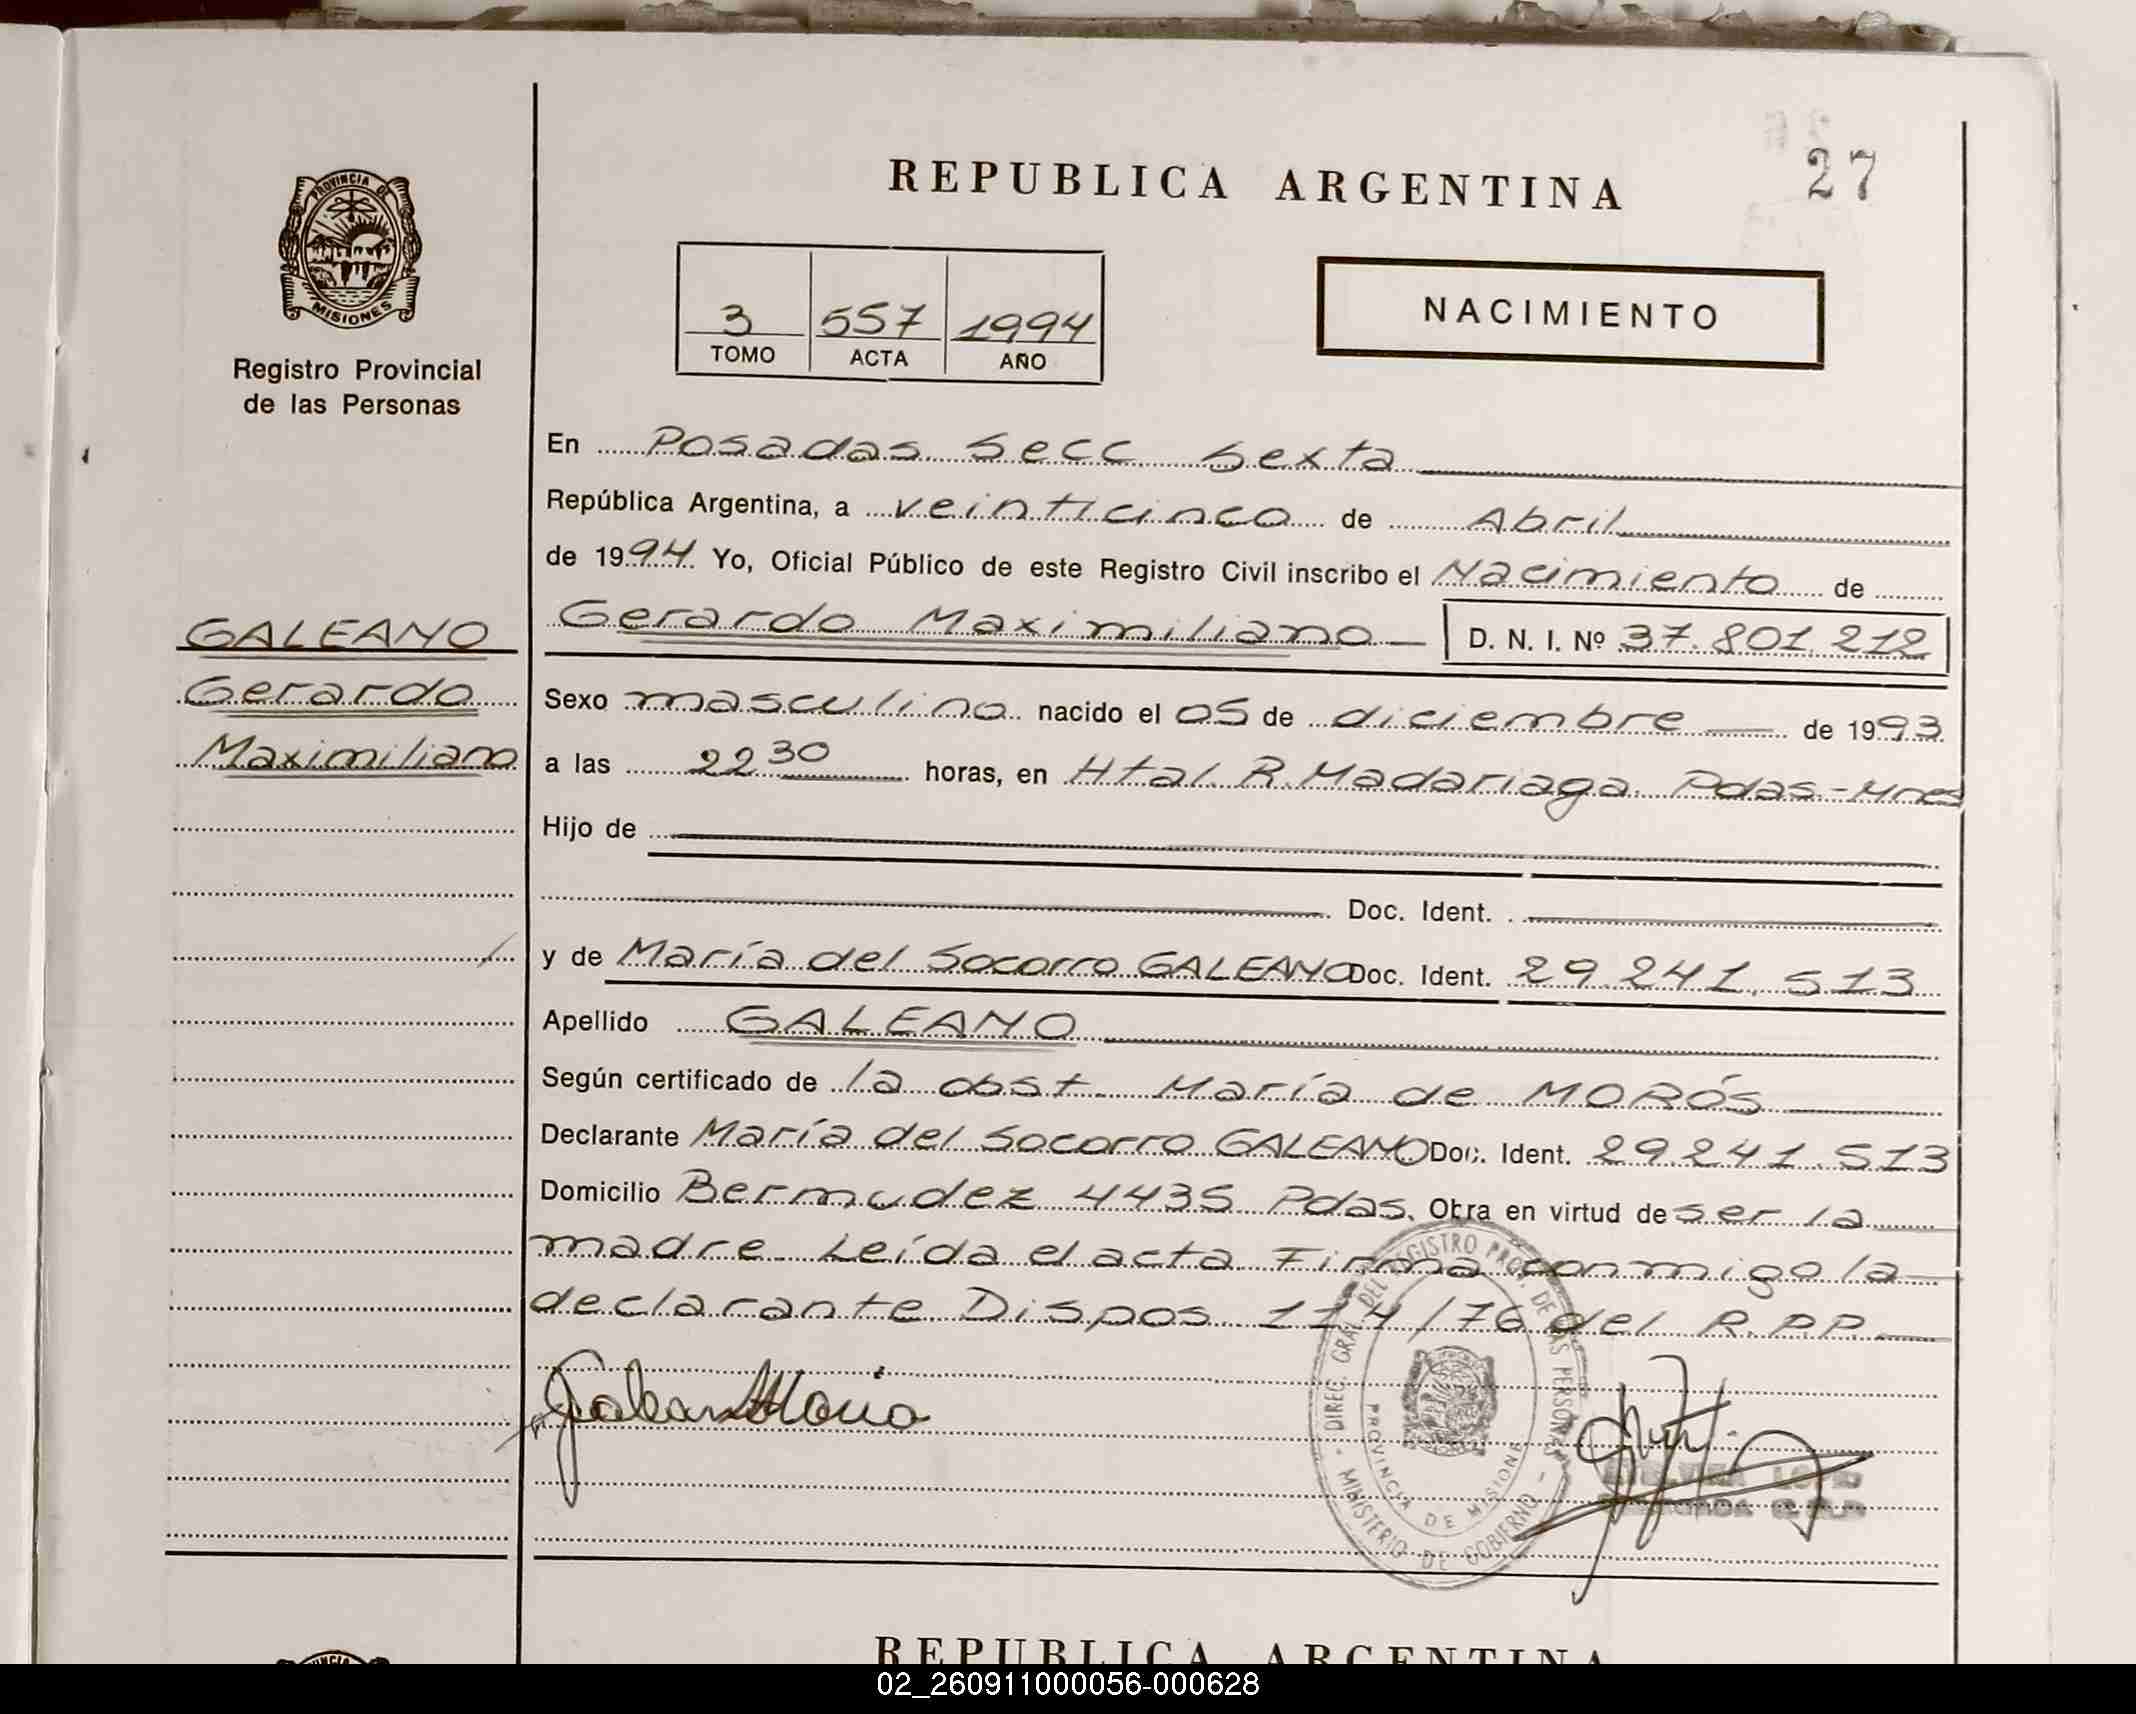 27
REPUBLICA ARGENTINA
PROVINCIA DE
MISIONES
Registro Provincial
de las Personas
3 557 1994
TOMO ACTA AÑO
NACIMIENTO
En Posadas Secc Sexta
República Argentina, a veinticinco de Abril
de 1994 Yo, Oficial Público de este Registro Civil inscribo el Nacimiento de
GALEANO
Gerardo
Maximiliano
Gerardo Maximiliano D. N. I. Nº 37.801.212
Sexo masculino nacido el 05 de diciembre de 1993
a las 22 30 horas, en Htal. R. Madariaga. Pdas.-Mnes
Hijo de
Doc. Ident.
y de María del Socorro GALEANO Doc. Ident. 29.241.513
Apellido GALEANO
Según certificado de la obst. María de MORÓS
Declarante María del Socorro GALEANO Doc. Ident. 29.241.513
Domicilio Bermudez 4435 Pdas. Obra en virtud de ser la
madre. Leída el acta Firma conmigo la
declarante. Dispos. 114/76 del R.P.P.
DIREC. GRAL. DEL REGISTRO PROV. DE LAS PERSONAS
PROVINCIA DE MISIONES
MINISTERIO DE GOBIERNO
REPUBLICA ARGENTINA
02_260911000056-000628